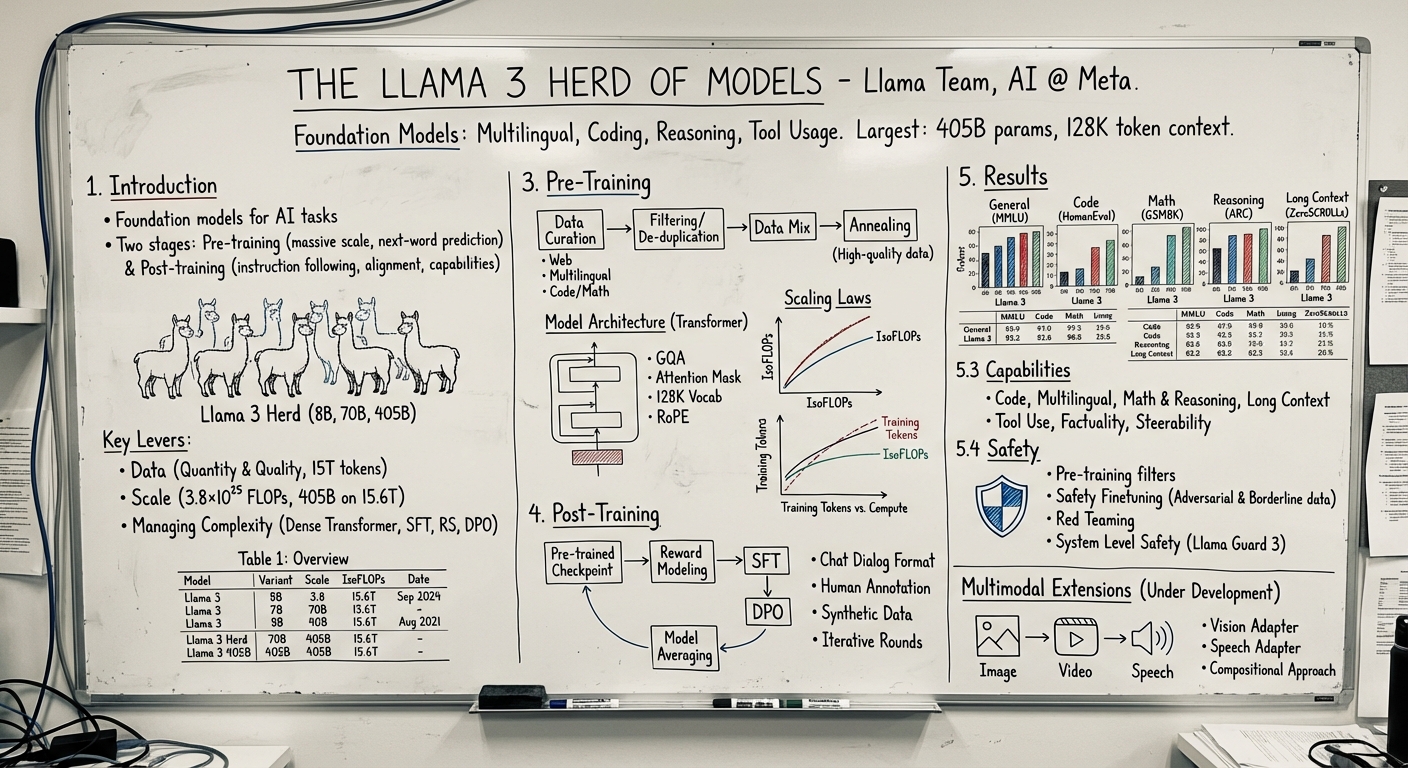 THE LLAMA 3 HERD OF MODELS – Llama Team, AI @ Meta.
Foundation Models: Multilingual, Coding, Reasoning, Tool Usage. Largest: 405B params, 128K token context.
1. Introduction
• Foundation models for AI tasks
• Two stages: Pre-training (massive scale, next-word prediction)
& Post-training (instruction following, alignment, capabilities)
Llama 3 Herd (8B, 70B, 405B)
Key Levers:
• Data (Quantity & Quality, 15T tokens)
• Scale (3.8×10²⁵ FLOPs, 405B on 15.6T)
• Managing Complexity (Dense Transformer, SFT, RS, DPO)
Table 1: Overview
Model Variant Scale IsoFLOPs Date
Llama 3 3.8 15.6T Sep 2024
Llama 3 70B –
Llama 3 15.6T Aug 2021
Llama 3 Herd 70B 405B 15.6T –
Llama 3 405B 405B 15.6T –
3. Pre-Training
Data Curation
Filtering/ De-duplication
Data Mix
Annealing
• Web
• Multilingual
• Code/Math
(High-quality data)
Model Architecture (Transformer)
• GQA
• Attention Mask
• 128K Vocab
• RoPE
Scaling Laws
IsoFLOPs
IsoFLOPs
IsoFLOPs
Training
Training
Tokens
IsoFLOPs
Training Tokens vs. Compute
4. Post-Training
Pre-trained
Checkpoint
Reward
Modeling
SFT
DPO
Model
Averaging
• Chat Dialog Format
• Human Annotation
• Synthetic Data
• Iterative Rounds
5. Results
General
(MMLU)
Code
(HumanEval)
Math
(GSM8K)
Reasoning
(ARC)
Long Context
Llama 3
Llama 3
Llama 3
Llama 3
Llama 3
MMLU Code Math
General
Llama 3 93.2 92.6
MMLU Code Math
Code
Code
Reasoning
Long Context 62.2 63.2 62.3
5.3 Capabilities
• Code, Multilingual, Math & Reasoning, Long Context
• Tool Use, Factuality, Steerability
5.4 Safety
• Pre-training filters
• Safety Finetuning (Adversarial & Borderline data)
• Red Teaming
• System Level Safety (Llama Guard 3)
Multimodal Extensions (Under Development)
Image
Video
Speech
• Vision Adapter
• Speech Adapter
• Compositional Approach